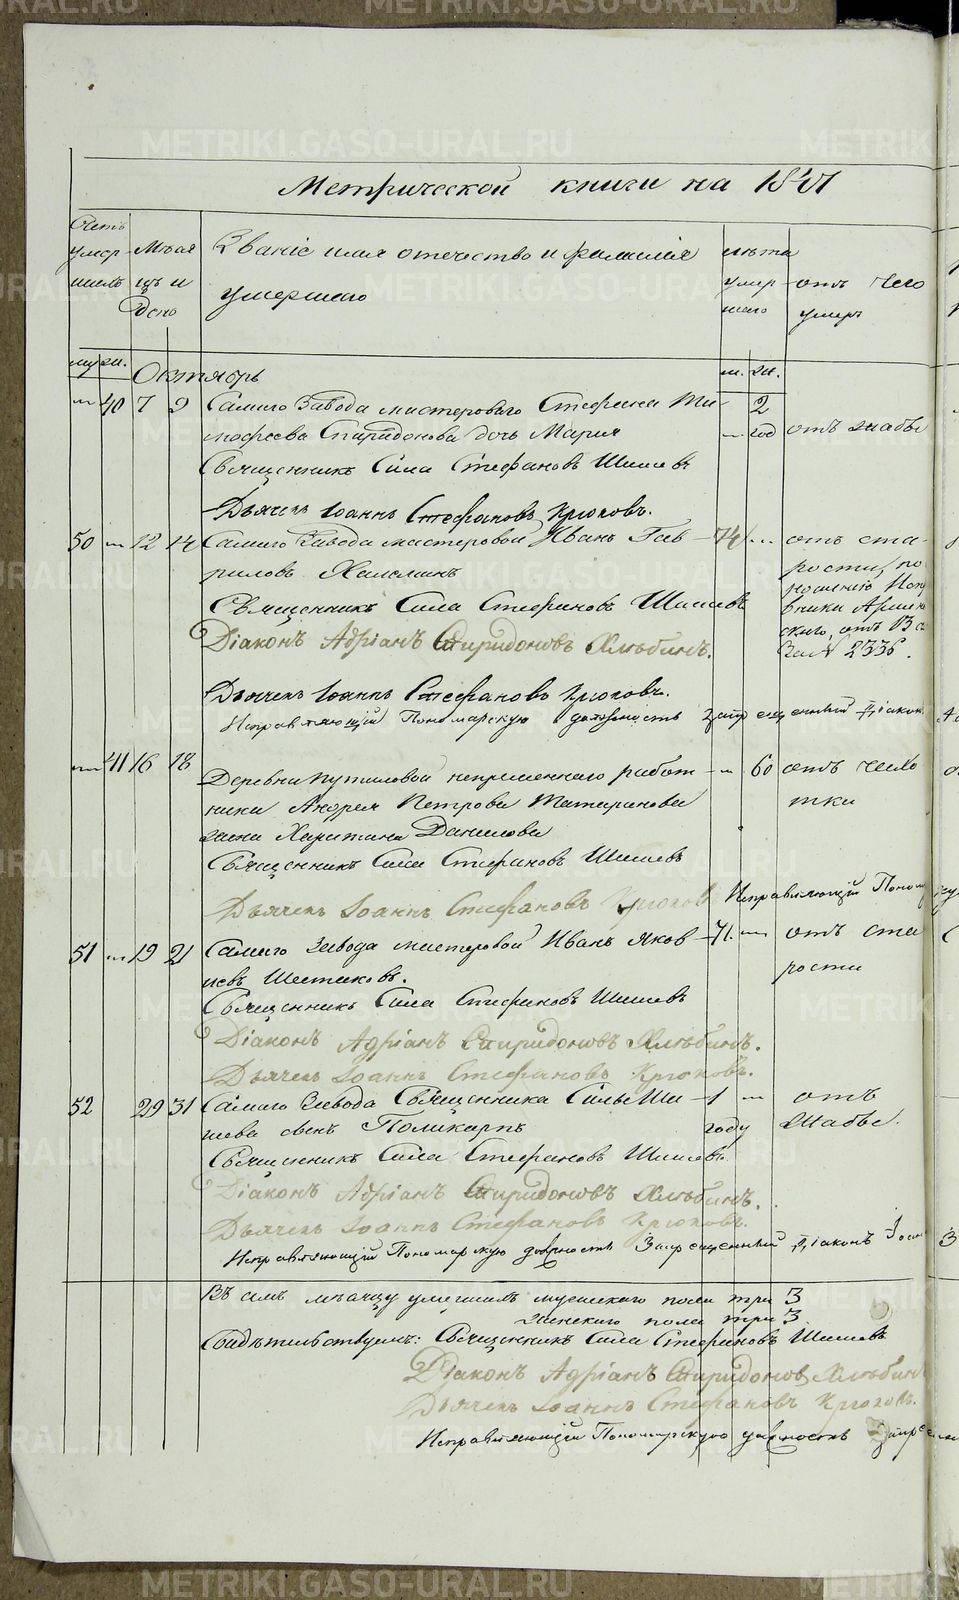 Метрической книги на 18
Счетъ умер- шихъ
Мѣся- цъ и день
Званіе имя отечество и фамилія умершаго
лѣта умер- шаго
отъ чего умеръ
му. ж.
Октябрь
м. ж.
40 7 9 Самаго Завода мастероваго Стефана Ти- 2
мофеева Спиридонова дочь Марія год отъ жабы
Священникъ Сила Стефановъ Шишевъ
Дьячекъ Іоаннъ Стефановъ Крюковъ.
50 12 14 Самаго Завода мастеровой Иванъ Гав- 74 отъ ста-
риловъ рости, по
Священникъ Сила Стефановъ Шишевъ
Діаконъ Адріанъ Спиридоновъ Хлѣбинъ. За № 2336.
Дьячекъ Іоаннъ Стефановъ Крюковъ.
Исправляющій Пономарскую должность Запрещенный Діакон
41 16 18 Деревни Путиловой непременнаго работ- 60 отъ чехо
ника Андрея Петрова Татаринова тки
жена Харитина Данилова
Священникъ Сила Стефановъ Шишевъ
Дьячекъ Іоаннъ Стефановъ Крюков Исправляющій Поном
51 19 21 Самаго Завода мастеровой Иванъ Яков- 71. отъ ста
левъ Шестаковъ. рости
Священникъ Сила Стефановъ Шишевъ
Діаконъ Адріанъ Спиридоновъ Хлѣбинъ.
Дьячекъ Іоаннъ Стефановъ Крюковъ.
52 29 31 Самаго Завода Священника Силы Ши- 1 отъ
шева сынъ Поликарпъ году Жабы.
Священникъ Сила Стефановъ Шишевъ
Діаконъ Адріанъ Спиридоновъ Хлѣбинъ.
Дьячекъ Іоаннъ Стефановъ Крюковъ.
Исправляющій Пономарскую должность Запрещенный Діаконъ Іоан
Въ семъ месяцу умершихъ мужескаго пола три 3
женскаго пола три 3
Свидѣтельствуемъ: Священникъ Сила Стефановъ Шишевъ
Діаконъ Адріанъ Спиридонов Хлѣбин
Дьячекъ Іоаннъ Стефановъ Крюковъ.
Исправляющій Пономарскую должность Запрещ
METRIKI.GASO-URAL.RU